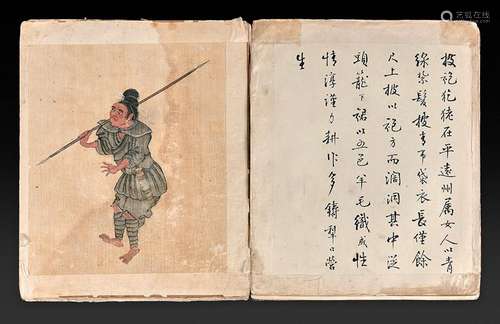 披袍犵狫在平遠州属女人以青
線紮髮披青布袋衣長僅餘
尺上披以袍方而濶洞其中從
頭籠下裙以五色羊毛織成性
情淳謹力耕作多鑄犁口營
生